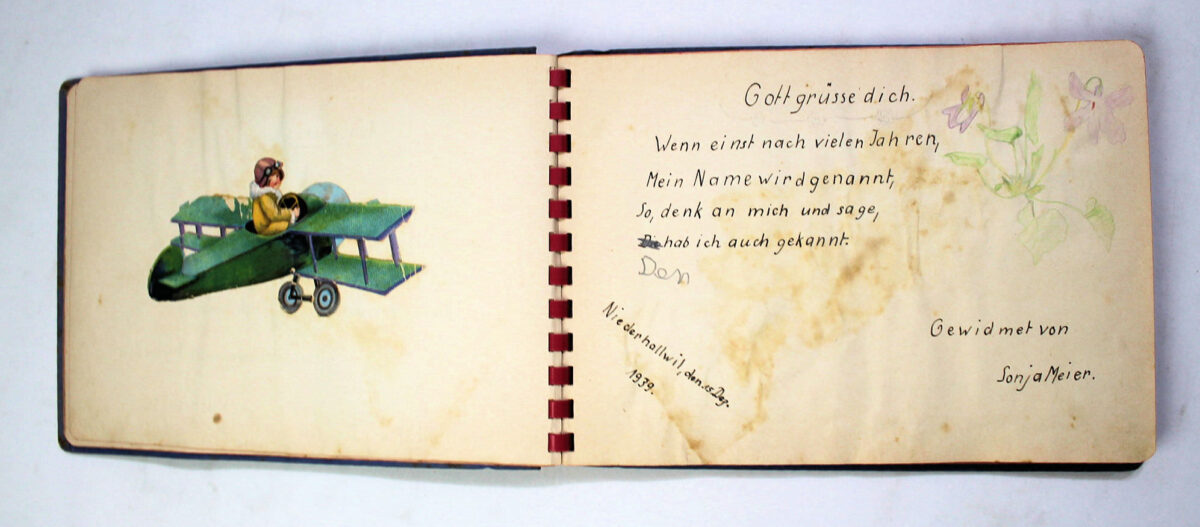 Gott grüsse dich.
Wenn einst nach vielen Jahren,
Mein Name wird genannt,
So, denk an mich und sage,
hab ich auch gekannt.
Den
Niederhallwil, den 15 Dez.
1939.
Gewidmet von
Sonja Meier.